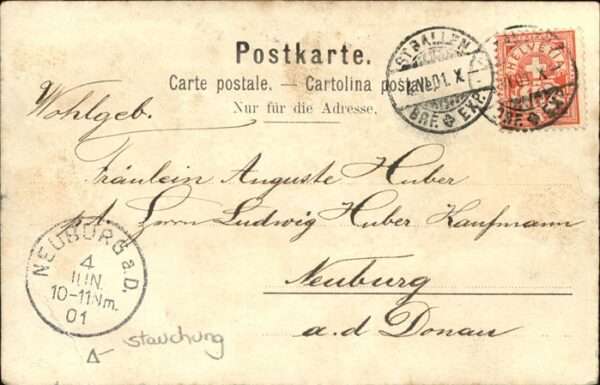 Postkarte.
Carte postale. — Cartolina postale.
Nur für die Adresse.
ST. GALLEN
VI.01. X
BRF. EXP.
HELVETIA
Wohlgeb.
Fräulein Auguste Huber
Herrn Ludwig Huber Kaufmann
Neuburg
a.d Donau
NEUBURG a.D.
4
JUN.
10-11 Nm.
01
stauchung